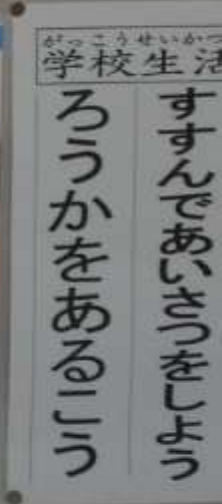 がっこうせいかつ
学校生活
すすんであいさつをしよう
ろうかをあるこう